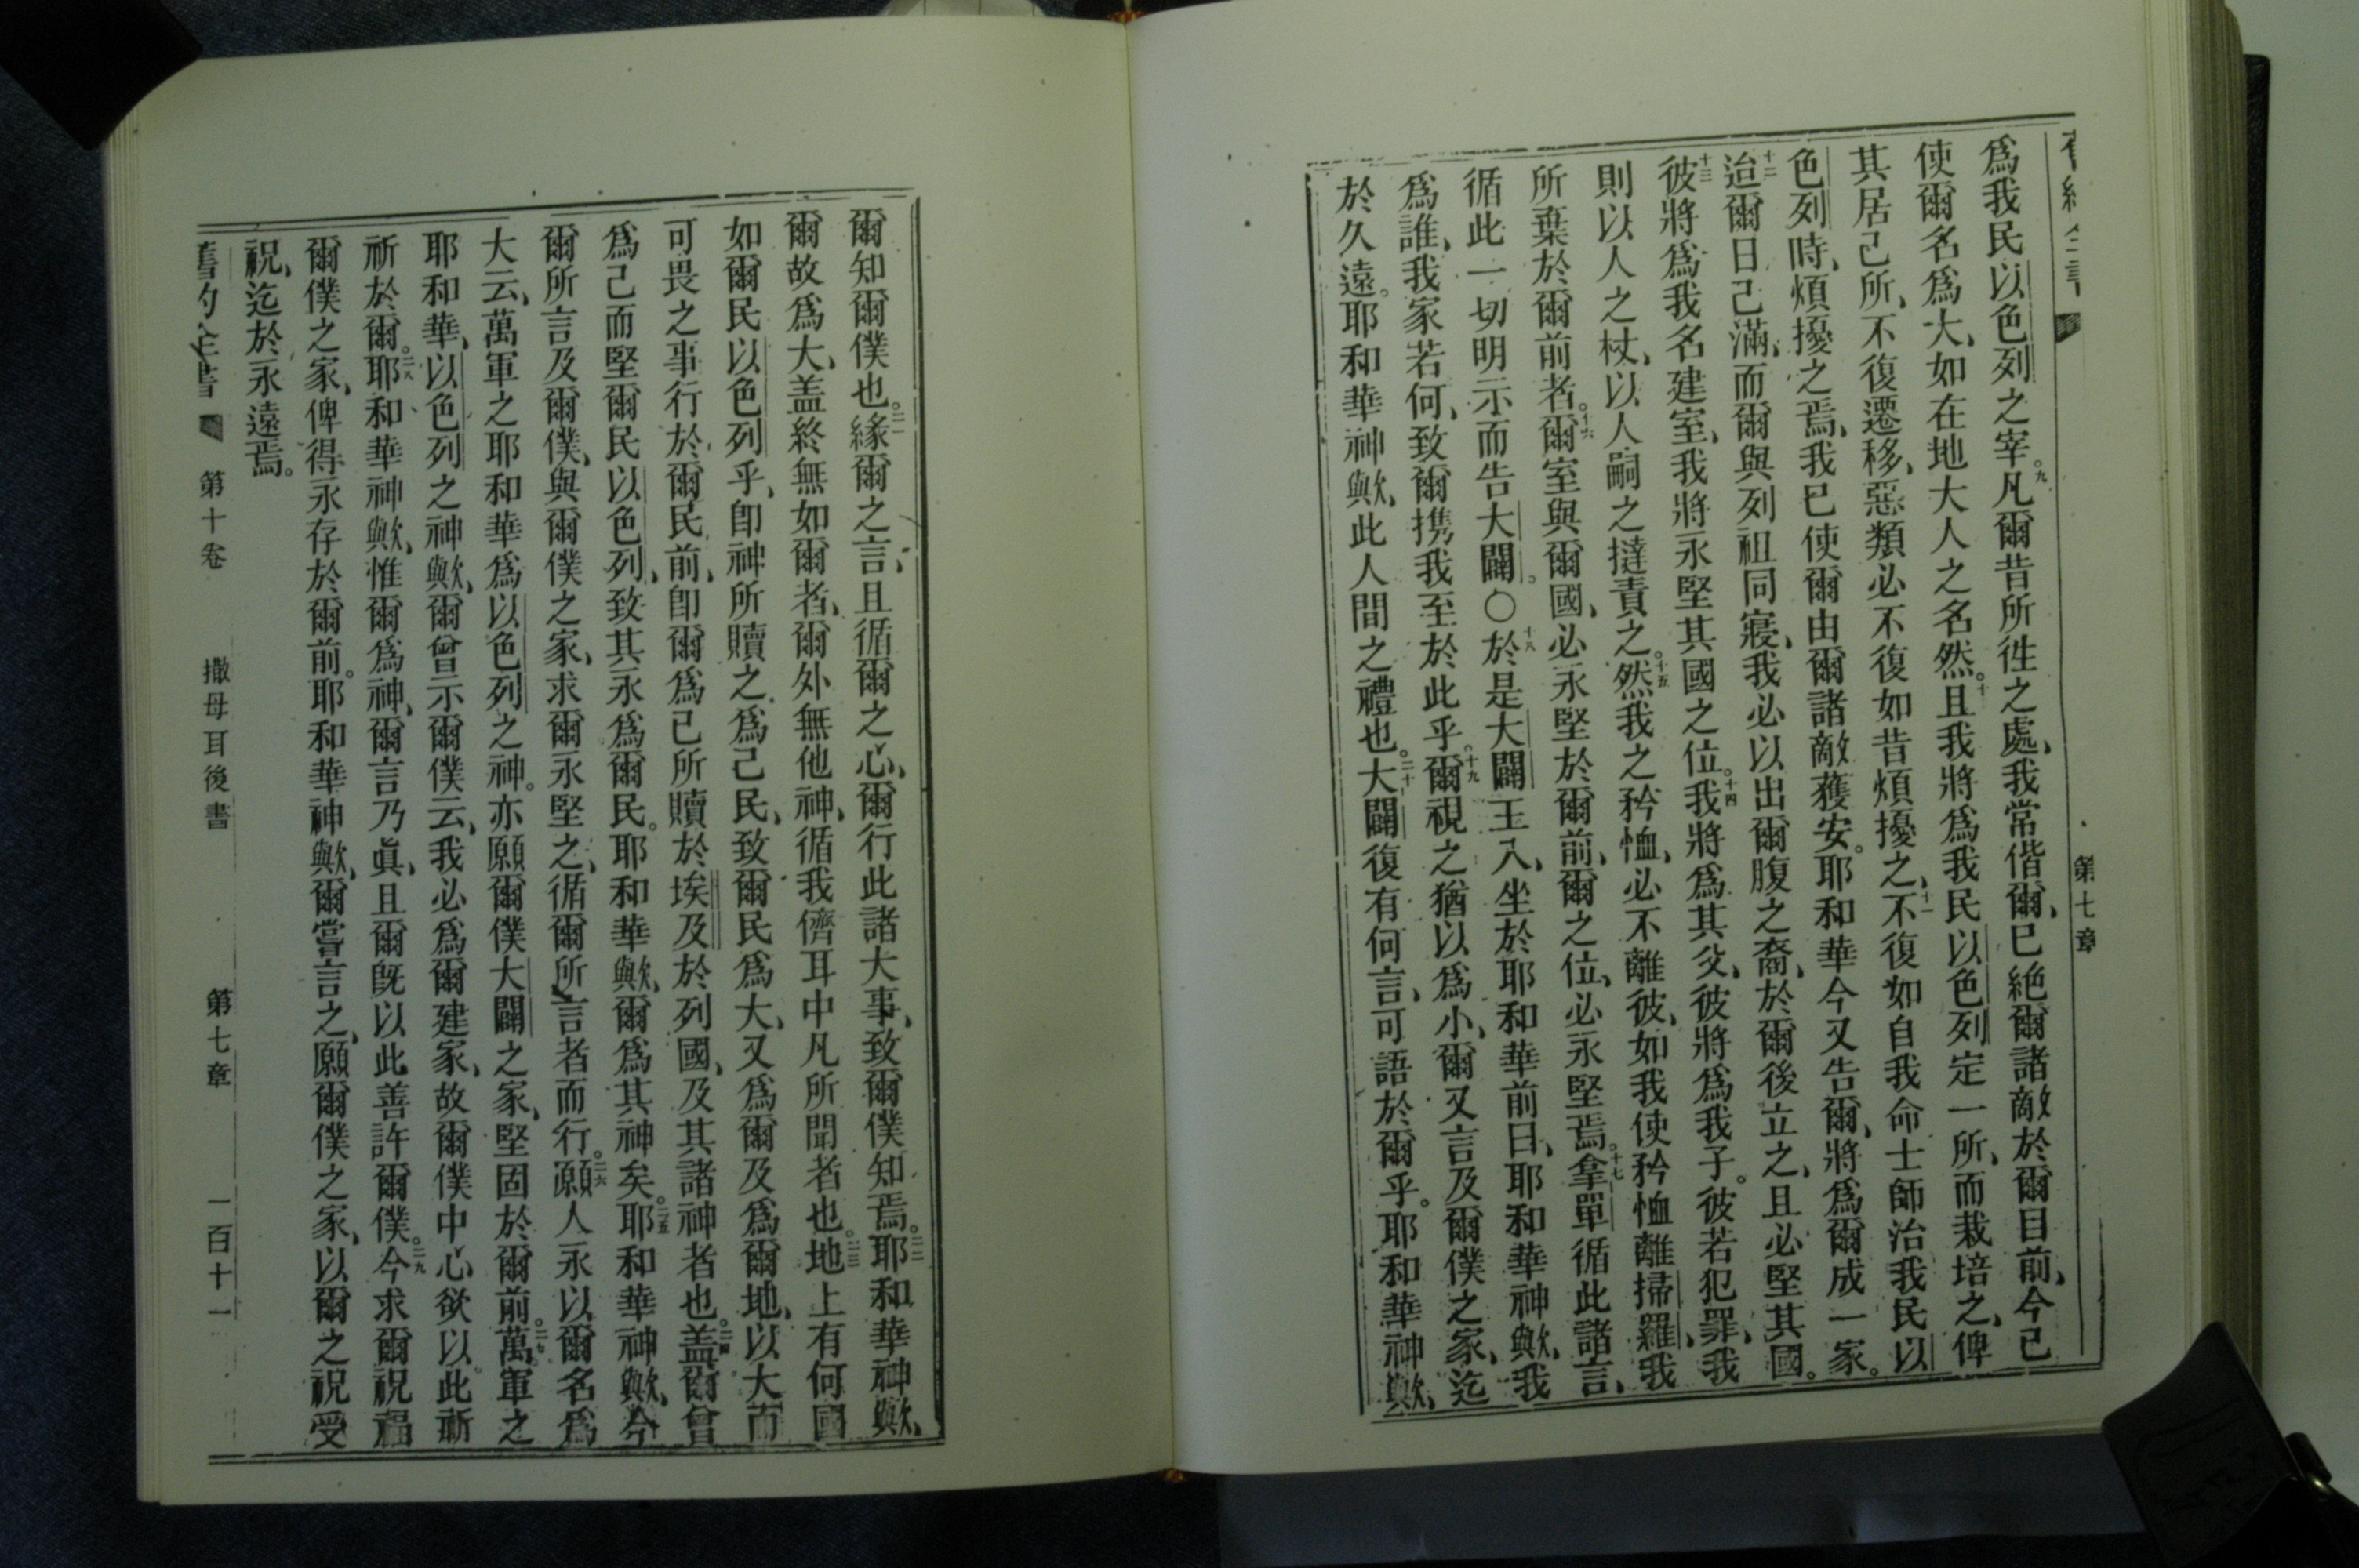 全書 第七章
爲我民以色列之宰。九凡爾昔所徃之處、我常偕爾、已絕爾諸敵於爾目前、今已
使爾名爲大、如在地大人之名然。十且我將爲我民以色列定一所、而栽培之、俾
其居己所、不復遷移、惡類必不復如昔煩擾之、十一不復如自我命士師治我民以
色列時、煩擾之焉、我已使爾由爾諸敵獲安。耶和華今又告爾、將爲爾成一家。
十二迨爾日已滿、而爾與列祖同寢、我必以出爾腹之裔、於爾後立之、且必堅其國。
十三彼將爲我名建室、我將永堅其國之位。十四我將爲其父、彼將爲我子。彼若犯罪、我
則以人之杖、以人嗣之撻責之。十五然我之矜恤、必不離彼、如我使矜恤離掃羅、我
所棄於爾前者。十六爾室與爾國、必永堅於爾前、爾之位、必永堅焉。十七拿單循此諸言、
循此一切明示而告大闢。○十八於是大闢王入、坐於耶和華前曰、耶和華神歟、我
爲誰、我家若何、致爾携我至於此乎。十九爾視之猶以爲小、爾又言及爾僕之家、迄
於久遠。耶和華神歟、此人間之禮也。二十大闢復有何言、可語於爾乎。耶和華神歟、
爾知爾僕也。二一緣爾之言、且循爾之心、爾行此諸大事、致爾僕知焉。二二耶和華神歟、
爾故爲大、盖終無如爾者、爾外無他神、循我儕耳中凡所聞者也。二三地上有何國
如爾民以色列乎、卽神所贖之爲己民、致爾民爲大、又爲爾及爲爾地、以大而
可畏之事行於爾民前、卽爾爲己所贖於埃及於列國、及其諸神者也。二四盖爾曾
爲己而堅爾民以色列、致其永爲爾民。耶和華歟、爾爲其神矣。二五耶和華神歟、今
爾所言及爾僕、與爾僕之家、求爾永堅之、循爾所言者而行。二六願人永以爾名爲
大云、萬軍之耶和華爲以色列之神。亦願爾僕大闢之家、堅固於爾前。二七萬軍之
耶和華、以色列之神歟、爾曾示爾僕云、我必爲爾建家、故爾僕中心欲以此祈
祈於爾。二八耶和華神歟、惟爾爲神、爾言乃眞、且爾旣以此善許爾僕。二九今求爾祝福
爾僕之家、俾得永存於爾前。耶和華神歟、爾嘗言之、願爾僕之家、以爾之祝受
祝、迄於永遠焉。
舊約全書 第十卷 撒母耳後書 第七章 一百十一